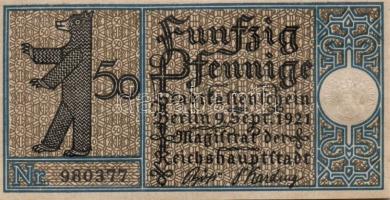 50
Funfzig
Pfennige
Stadtkassenschein
Berlin 9. Sept. 1921
Magistrat der
Reichshauptstadt
Nr. 980377